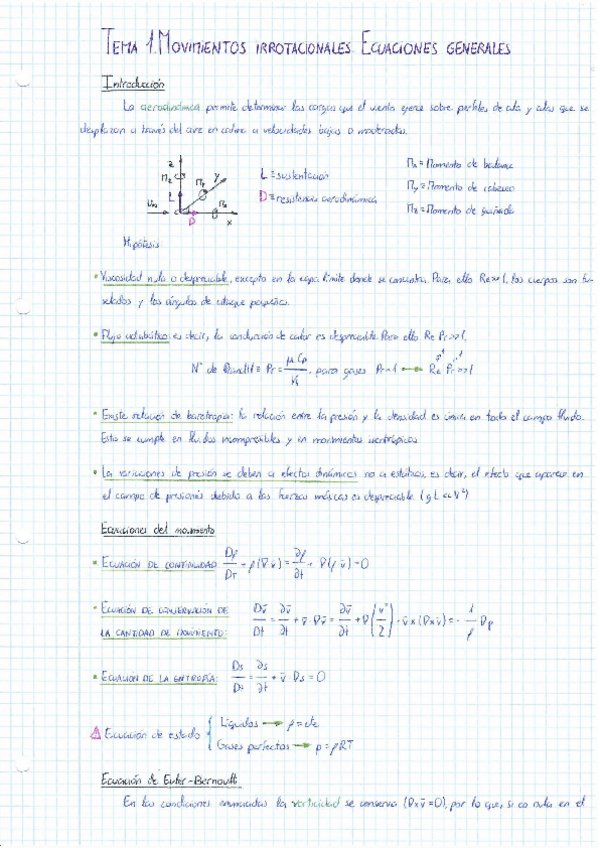 TEMA 1. MOVIMIENTOS IRROTACIONALES. ECUACIONES GENERALES
Introducción
La aerodinámica permite determinar las cargas que el viento ejerce sobre perfiles de ala y alas que se
desplazan a través del aire en calma a velocidades bajas o moderadas.
z
Mz
y
My
L
U∞
D
Mx
x
L ≡ sustentación
D ≡ resistencia aerodinámica
Mx ≡ Momento de balance
My ≡ Momento de cabeceo
Mz ≡ Momento de guiñada
Hipótesis
• Viscosidad nula o despreciable, excepto en la capa límite donde se concentra. Para ello Re>>1, los cuerpos son fu-
selados y los ángulos de ataque pequeños.
• Flujo adiabático: es decir, la conducción de calor es despreciable. Para ello Re Pr>>1.
Nº de Prandtl ≡ Pr = μ Cp / K, para gases Pr~1 → Re Pr>>1
• Existe relación de barotropía: la relación entre la presión y la densidad es única en todo el campo fluido.
Esto se cumple en fluidos incompresibles y en movimientos isentrópicos.
• Las variaciones de presión se deben a efectos dinámicos no a estáticos, es decir, el efecto que aparece en
el campo de presiones debido a las fuerzas másicas es despreciable. (gL << V²)
Ecuaciones del movimiento
• ECUACIÓN DE CONTINUIDAD: Dρ/Dt + ρ(∇·v̄) = ∂ρ/∂t + ∇(ρ·v̄) = 0
• ECUACIÓN DE CONSERVACIÓN DE
LA CANTIDAD DE MOVIMIENTO: Dv̄/Dt = ∂v̄/∂t + v̄·∇v̄ = ∂v̄/∂t + ∇(v²/2) - v̄ x (∇x v̄) = - 1/ρ ∇p
• ECUACIÓN DE LA ENTROPÍA: Ds/Dt = ∂s/∂t + v̄·∇s = 0
Ecuación de estado
Líquidos → ρ = cte
Gases perfectos → p = ρRT
Ecuación de Euler-Bernoulli
En las condiciones enunciadas la vorticidad se conserva (∇x v̄ = 0), por lo que, si es nula en el